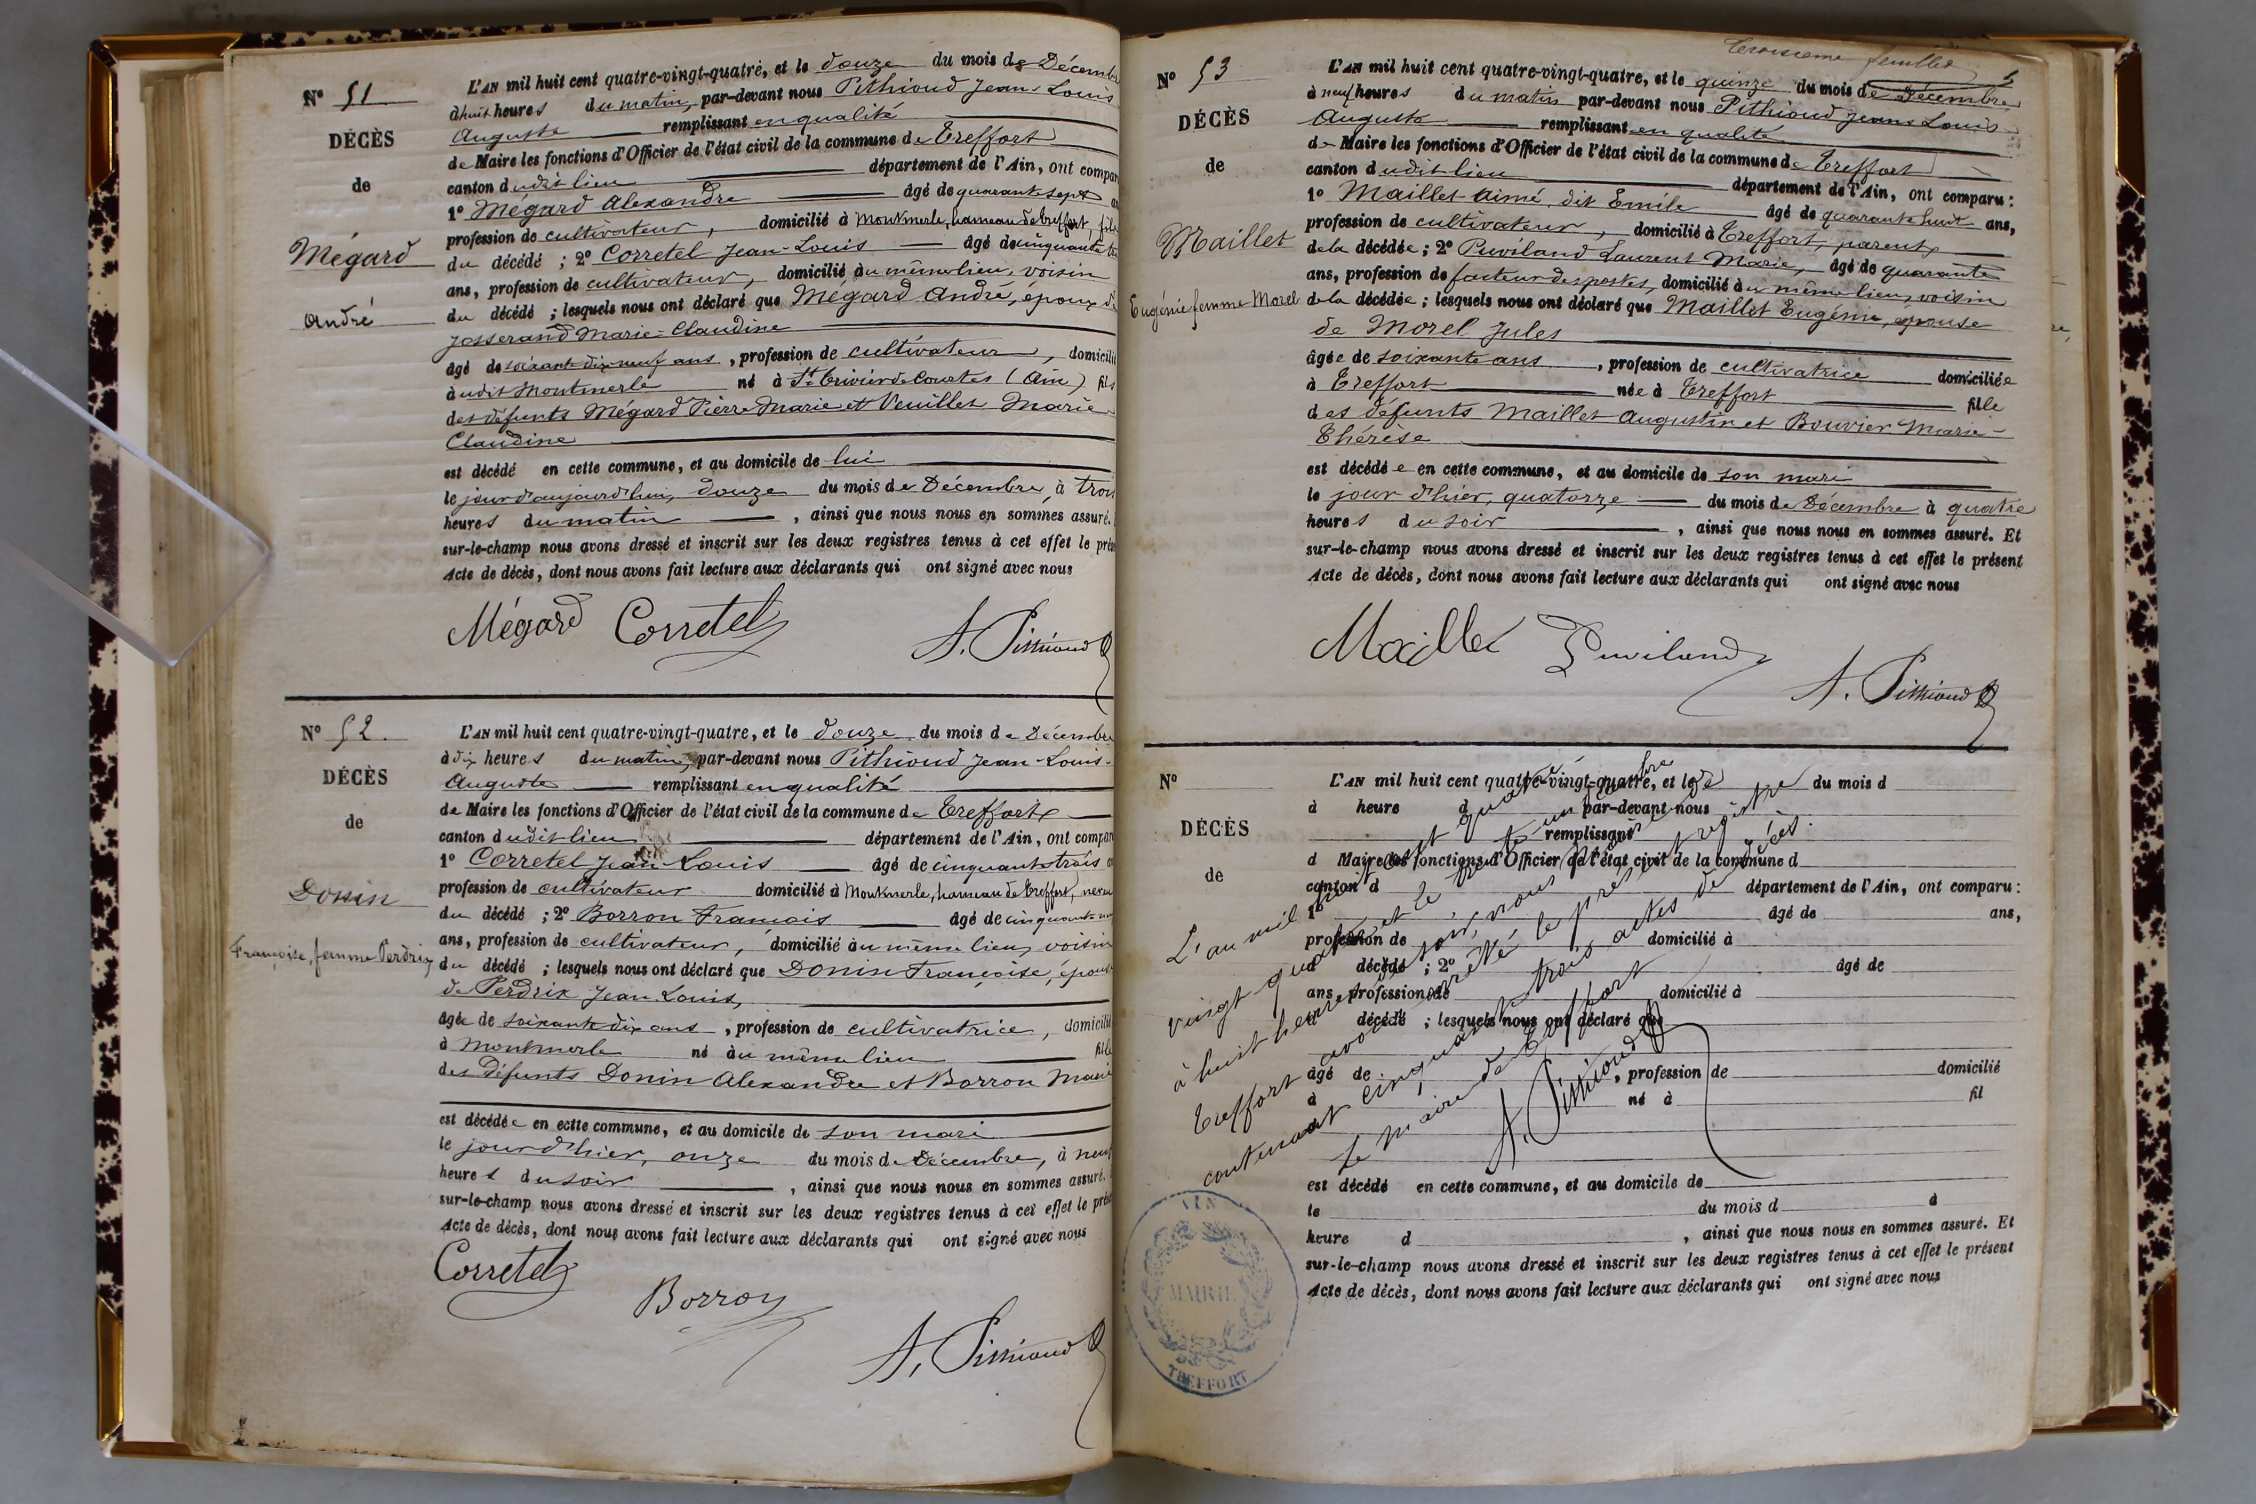 N° 51
DÉCÈS
de
Mégard
André
L'AN mil huit cent quatre-vingt-quatre, et le douze du mois de Décembre
à huit heures du matin, par-devant nous Pithioud Jean-Louis
Auguste remplissant en qualité
de Maire les fonctions d'Officier de l'état civil de la commune de Treffort
canton dudit lieu département de l'Ain, ont compar
1° Mégard Alexandre âgé de quarante sept
profession de cultivateur, domicilié à Montmerle, hameau de Treffort, fils
du décédé ; 2° Corretel Jean-Louis âgé de cinquante
ans, profession de cultivateur, domicilié au même lieu, voisin
du décédé ; lesquels nous ont déclaré que Mégard André, époux de
Josserand Marie-Claudine
âgé de soixante dix neuf ans, profession de cultivateur, domicilié
à udit Montmerle né à St Trivier de Courtes (Ain) fils
des défunts Mégard Pierre Marie et Veuillet Marie
Claudine
est décédé en cette commune, et au domicile de lui
le jour d'aujourd'hui, douze du mois de Décembre, à trois
heures du matin, ainsi que nous nous en sommes assuré.
sur-le-champ nous avons dressé et inscrit sur les deux registres tenus à cet effet le prés
Acte de décès, dont nous avons fait lecture aux déclarants qui ont signé avec nous
Mégard Corretel A. Pithioud
N° 52.
DÉCÈS
de
Donin
Françoise, femme Perdrix
L'AN mil huit cent quatre-vingt-quatre, et le douze du mois de Décembre
à dix heures du matin, par-devant nous Pithioud Jean-Louis-
Auguste remplissant en qualité
de Maire les fonctions d'Officier de l'état civil de la commune de Treffort
canton dudit lieu département de l'Ain, ont compar
1° Corretel Jean-Louis âgé de cinquante trois
profession de cultivateur domicilié à Montmerle, hameau de Treffort, neveu
du décédé ; 2° Borron François âgé de cinquante
ans, profession de cultivateur, domicilié au même lieu, voisin
du décédé ; lesquels nous ont déclaré que Donin Françoise, épouse
de Perdrix Jean-Louis,
âgée de soixante dix ans, profession de cultivatrice, domicilié
à Montmerle né au même lieu fille
des défunts Donin Alexandre et Borron Marie
est décédée en cette commune, et au domicile de son mari
le jour d'hier, onze du mois de Décembre, à neuf
heures du soir, ainsi que nous nous en sommes assuré.
sur-le-champ nous avons dressé et inscrit sur les deux registres tenus à cet effet le prés
Acte de décès, dont nous avons fait lecture aux déclarants qui ont signé avec nous
Corretel
Borron
A. Pithioud
Troisième feuillet
N° 53
DÉCÈS
de
Maillet
Eugénie femme Morel
L'AN mil huit cent quatre-vingt-quatre, et le quinze du mois de Décembre
à neuf heures du matin par-devant nous Pithioud Jean-Louis
Auguste remplissant en qualité
de Maire les fonctions d'Officier de l'état civil de la commune de Treffort
canton dudit lieu département de l'Ain, ont comparu :
1° Maillet Aimé, dit Emile âgé de quarante huit ans,
profession de cultivateur, domicilié à Treffort, parent
de la décédée ; 2° Puviland Laurent Marie, âgé de quarante
ans, profession de facteur des postes, domicilié au même lieu, voisin
de la décédée ; lesquels nous ont déclaré que Maillet Eugénie, épouse
de Morel Jules
âgée de soixante ans, profession de cultivatrice domiciliée
à Treffort née à Treffort fille
des défunts Maillet Augustin et Bouvier Marie-
Thérèse
est décédée en cette commune, et au domicile de son mari
le jour d'hier, quatorze du mois de Décembre à quatre
heures du soir, ainsi que nous nous en sommes assuré. Et
sur-le-champ nous avons dressé et inscrit sur les deux registres tenus à cet effet le présent
Acte de décès, dont nous avons fait lecture aux déclarants qui ont signé avec nous
Maillet Puviland
A. Pithioud
N°
DÉCÈS
de
L'AN mil huit cent quatre-vingt-quatre, et le du mois d
à heure d par-devant nous
remplissant
d Maire les fonctions d'Officier de l'état civil de la commune d
canton d département de l'Ain, ont comparu :
1° âgé de ans,
profession de domicilié à
d décédé ; 2° âgé de
ans, profession de domicilié à
d décédé ; lesquels nous ont déclaré que
âgé de , profession de domicilié
à né à fil
est décédé en cette commune, et au domicile de
le du mois d à
heure d , ainsi que nous nous en sommes assuré. Et
sur-le-champ nous avons dressé et inscrit sur les deux registres tenus à cet effet le présent
Acte de décès, dont nous avons fait lecture aux déclarants qui ont signé avec nous
L'an mil huit cent quatre
vingt quatre et le trente un décembre
à huit heures du soir, nous Maire de
Treffort avons arrêté le présent registre
contenant cinquante trois actes de décès.
Le Maire de Treffort
A. Pithioud
AIN
MAIRIE
TREFFORT